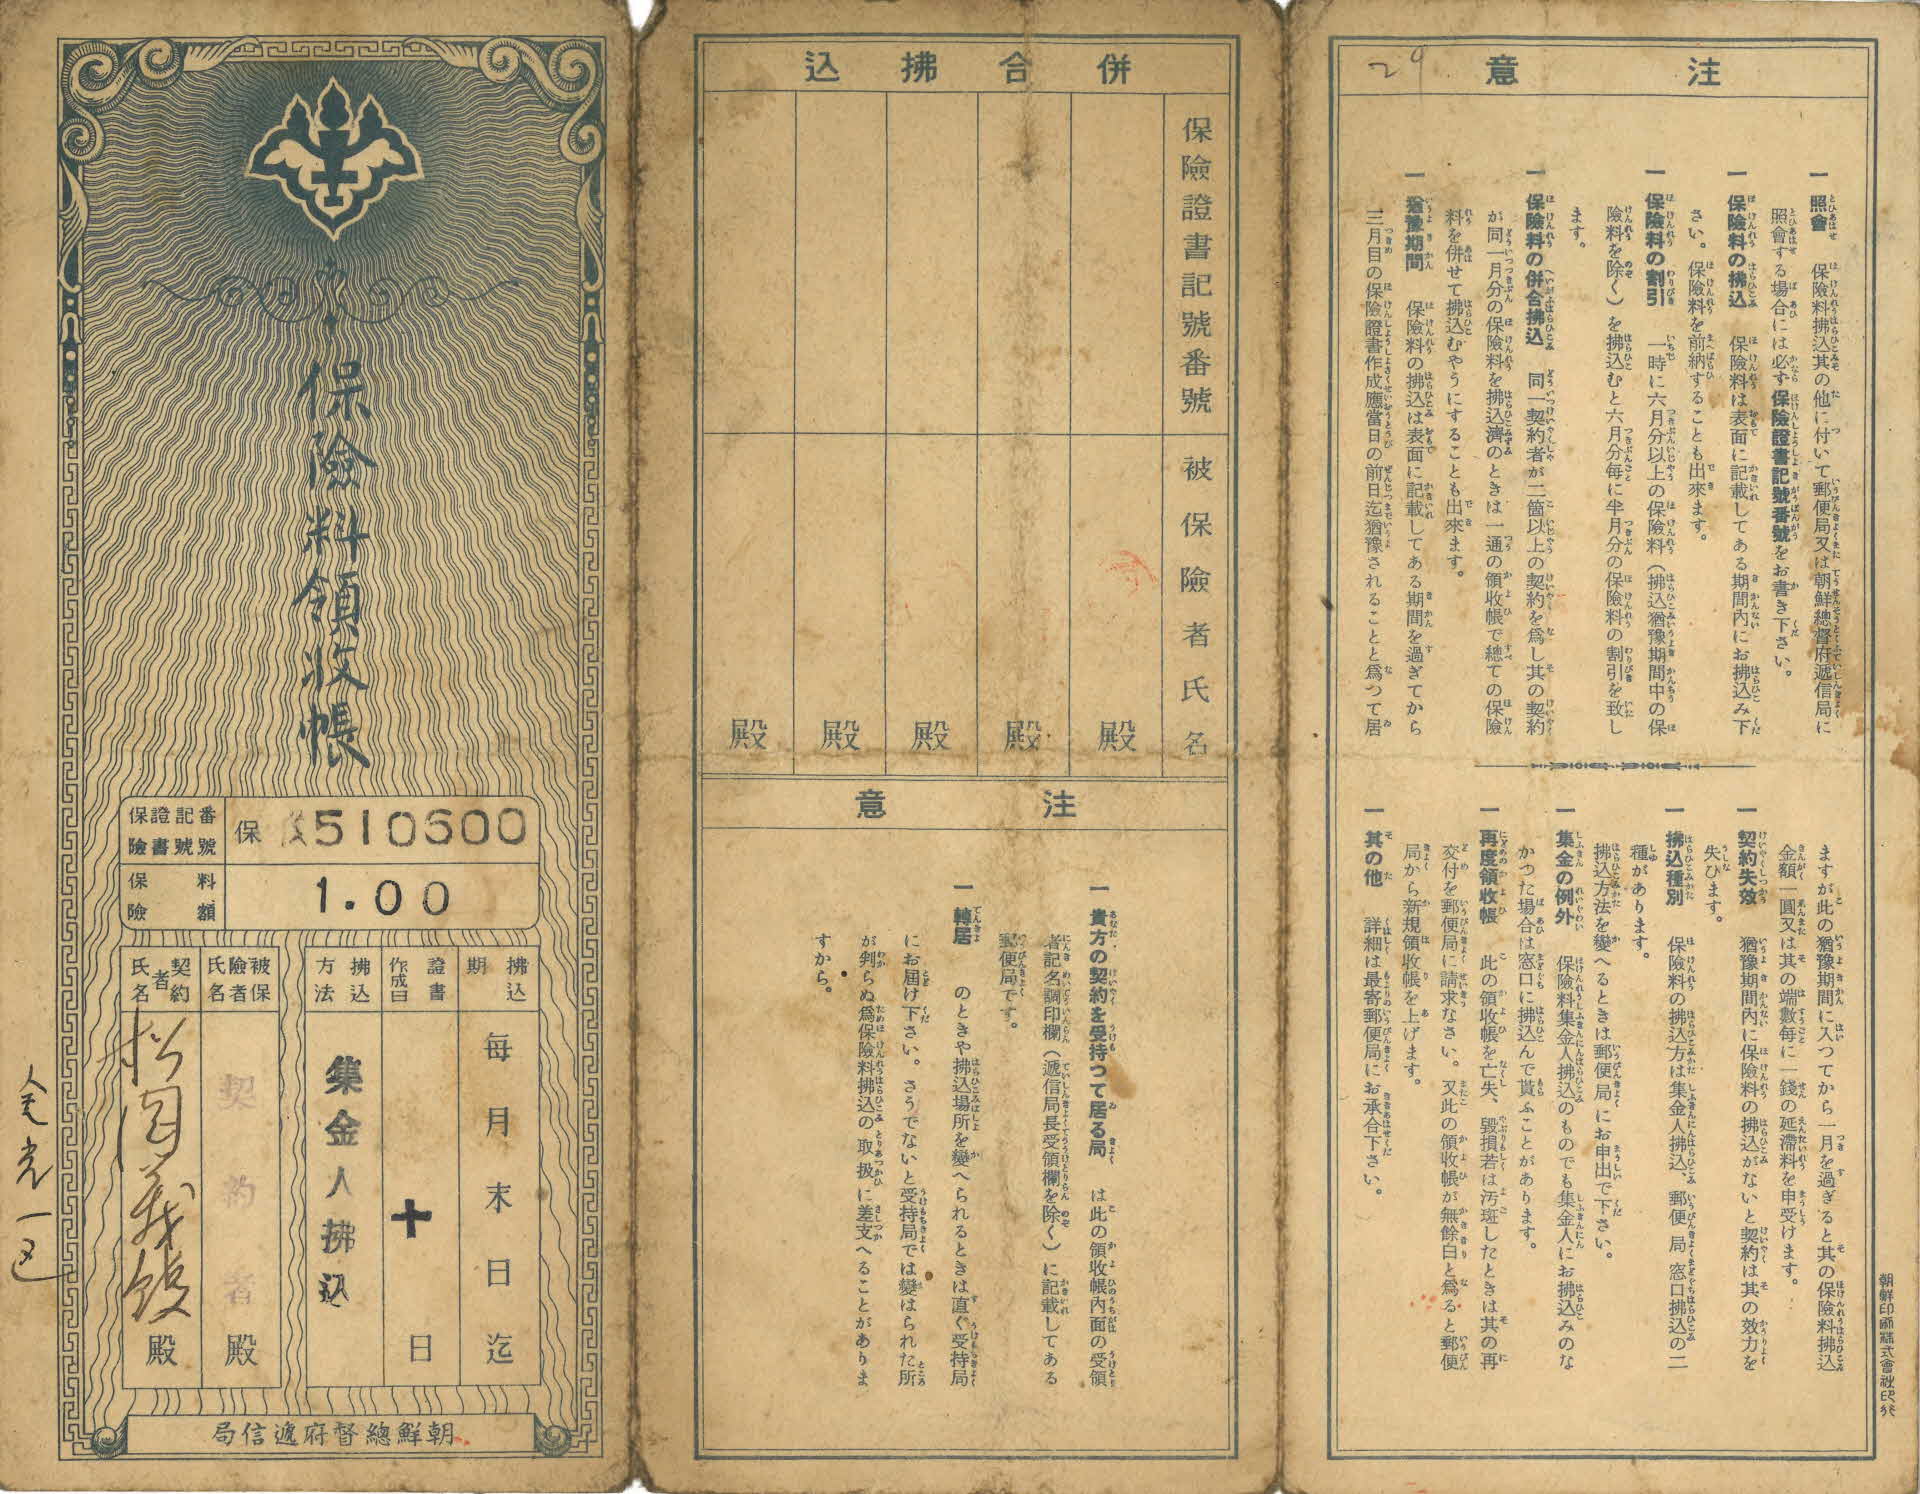 保險料領收帳
保險證書記號番號
保 510600
保險料額
1.00
拂込期
每月末日迄
證書作成日
十日
拂込方法
集金人拂込
被保險者氏名
契約者殿
契約者氏名
松岡義
殿
朝鮮總督府遞信局
併合拂込
保險證書記號番號
被保險者氏名
殿
殿
殿
殿
殿
注意
一 貴方の契約を受持つて居る局 は此の領收帳內面の受領
者記名調印欄(遞信局長受領欄を除く)に記載してある
郵便局です。
一 轉居 のときや拂込場所を變へられるときは直ぐ受持局
にお屆け下さい。さうでないと受持局では變はられた所
が判らぬ爲保險料拂込の取扱に差支へることがありま
すから。
注意
29
一 照會 保險料拂込其の他に付いて郵便局又は朝鮮總督府遞信局に
照會する場合には必ず保險證書記號番號をお書き下さい。
一 保險料の拂込 保險料は表面に記載してある期間內にお拂込み下
さい。保險料を前納することも出來ます。
一 保險料の割引 一時に六月分以上の保險料(拂込猶豫期間中の保
險料を除く)を拂込むと六月分每に半月分の保險料の割引を致し
ます。
一 保險料の併合拂込 同一契約者が二箇以上の契約を爲し其の契約
が同一月分の保險料を拂込濟のときは一通の領收帳で總ての保險
料を併せて拂込むやうにすることも出來ます。
一 猶豫期間 保險料の拂込は表面に記載してある期間を過ぎてから
三月目の保險證書作成應當日の前日迄猶豫されることと爲つて居
ますが此の猶豫期間に入つてから一月を過ぎると其の保險料拂込
金額一圓又は其の端數每に一錢の延滯料を申受けます。
一 契約失效 猶豫期間內に保險料の拂込がないと契約は其の效力を
失ひます。
一 拂込種別 保險料の拂込方は集金人拂込、郵便局窓口拂込の二
種があります。
拂込方法を變へるときは郵便局にお申出で下さい。
一 集金の例外 保險料集金人拂込のものでも集金人にお拂込みのな
かつた場合は窓口に拂込んで貰ふことがあります。
一 再度領收帳 此の領收帳を亡失、毀損若は汚斑したときは其の再
交付を郵便局に請求なさい。又此の領收帳が無餘白と爲ると郵便
局から新規領收帳を上げます。
一 其の他 詳細は最寄郵便局にお承合下さい。
朝鮮印刷株式會社印行